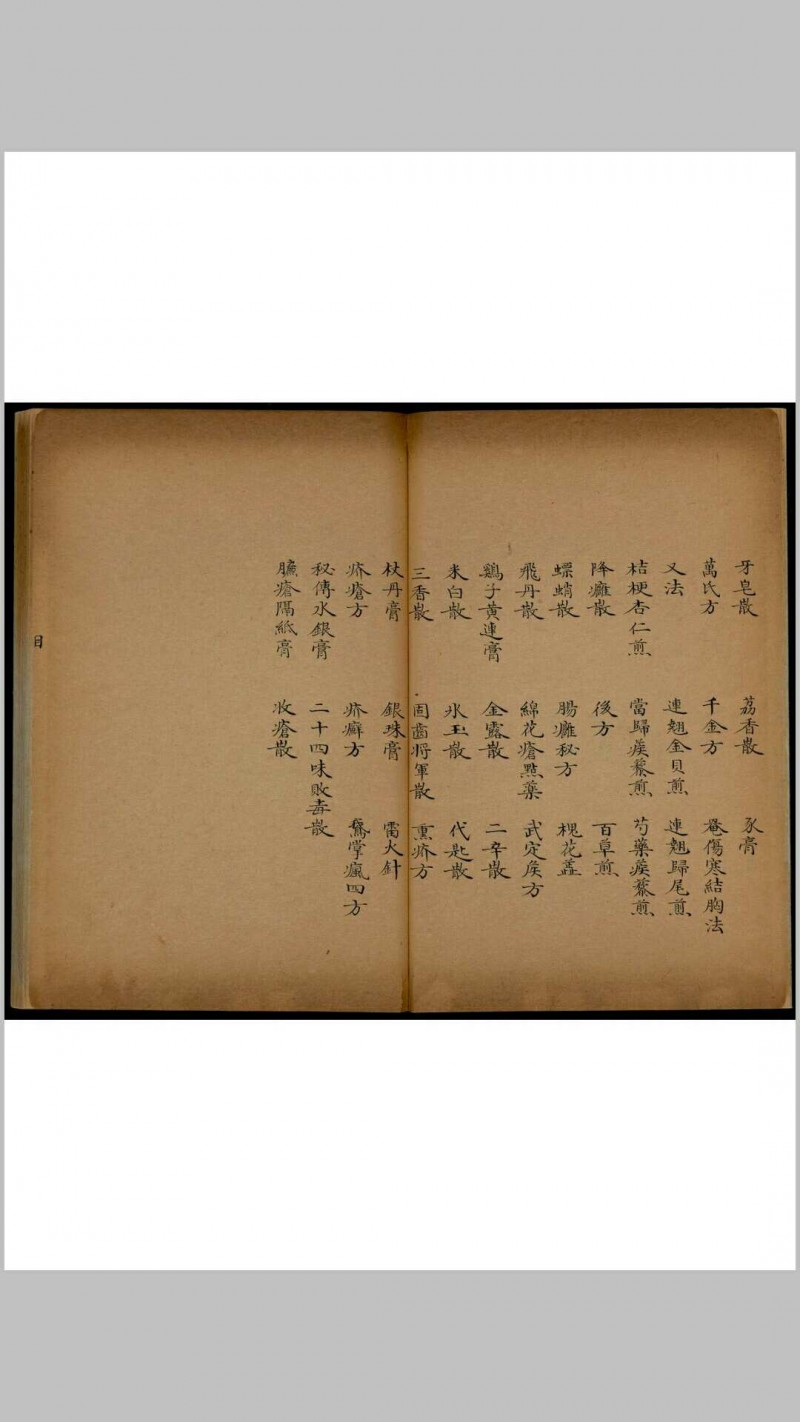 牙皂散 荔香散 豕膏
萬氏方 千金方 罨傷寒結胸法
又法 連翹金貝煎 連翹歸尾煎
桔梗杏仁煎 當歸蒺藜煎 芍藥蒺藜煎
降癰散 後方 百草煎
螵蛸散 腸癰秘方 槐花蕋
飛丹散 綿花瘡點藥 武定侯方
鷄子黃連膏 金露散 二辛散
氷白散 氷玉散 代匙散
三香散 固齒将軍散 熏疥方
杖丹膏 銀珠膏 雷火針
疥瘡方 疥癬方 鵞掌瘋四方
秘傳水銀膏 二十四味敗毒散
臁瘡隔紙膏 收瘡散
目